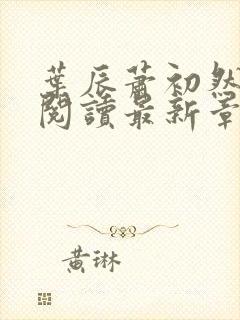 葉辰蕭初然
閱讀最新章
黃琳